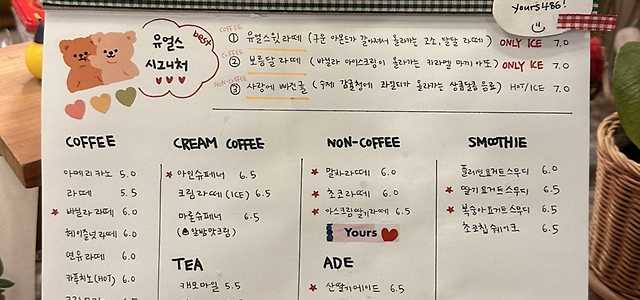 yours486!
유얼스
시그니처
best
COFFEE
① 유얼스힛 라떼 (구운 아몬드가 갈아져서 올라가는 고소, 달달 라떼) ONLY ICE 7.0
COFFEE
② 보름달 라떼 (바닐라 아이스크림이 올라가는 카라멜 마끼아또) ONLY ICE 7.0
NON-COFFEE
③ 사랑에 빠진귤 (수제 감귤청에 과일티가 올라가는 상큼달콤 음료) HOT/ICE 7.0
COFFEE
아메리카노 5.0
라떼 5.5
★ 바닐라 라떼 6.0
헤이즐넛 라떼 6.0
연유 라떼 6.0
카푸치노(HOT) 6.0
CREAM COFFEE
★ 아인슈페너 6.5
크림라떼 (ICE) 6.5
마론슈페너 6.5
(공주밤맛크림)
TEA
캐모마일 5.5
NON-COFFEE
★ 말차라떼 6.0
★ 초코라떼 6.0
★ 아스크림딸기라떼 6.5
Yours
ADE
★ 산딸기에이드 6.5
SMOOTHIE
플레인요거트스무디 6.0
★ 딸기요거트스무디 6.5
★ 복숭아요거트스무디 6.5
초코칩 쉐이크 6.5